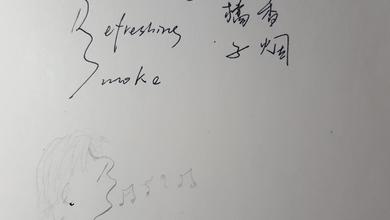 Refreshing
Smoke
橘子
香烟